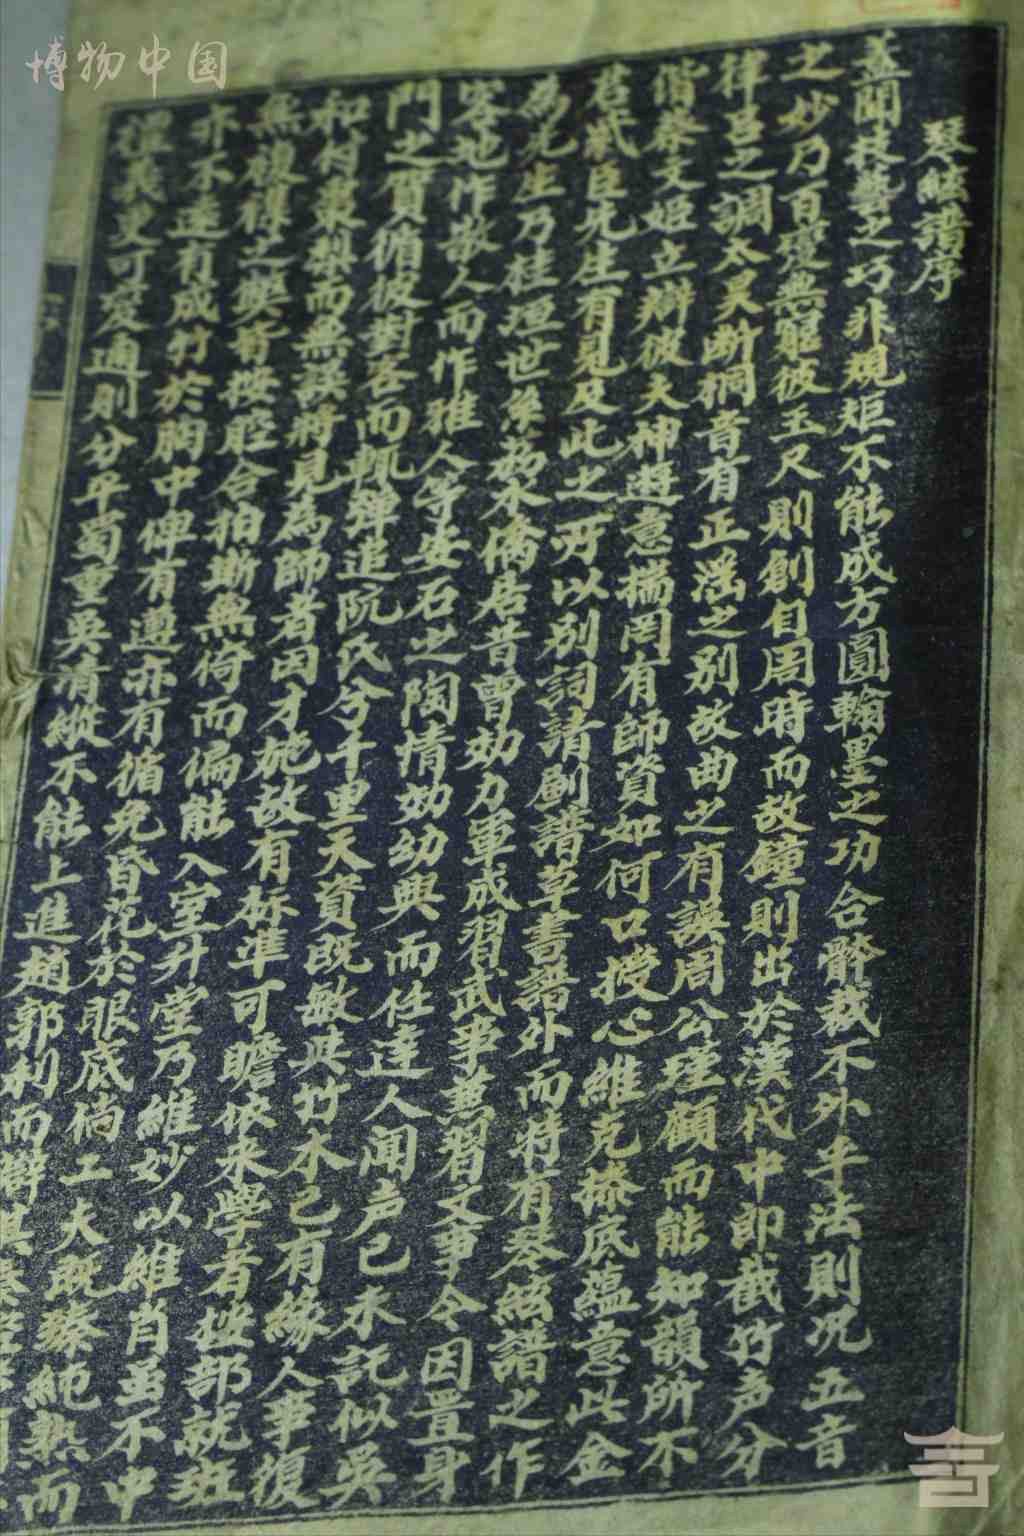 博物中国
琴絃譜序
盖聞技藝之巧非規矩不能成方圓翰墨之功合體裁不外乎法則况五音
之妙乃百變無窮彼玉尺則創自周時而故鐘則出於漢代中即截竹声分
律吕之調太昊断桐音有正淫之別故曲之有誤周公瑾顧而能知韻所不
偕蔡文姬立辯彼夫神遊意揣罔有師資如何口授心維克搽底蘊意此金
君武臣先生有見及此之所以别詞請劚譜草書譜外而将有琴絃譜之作
為先生乃桂垣世系務水僑居昔曾効力軍成習武事蕪習文事今因置身
客地作散人而作雅人等安石之陶情効幼與而任達人闻声已木託似吴
門之質循彼對客而輒弹追阮氏兮千里天資既敏共竹木已有緣人事復
和村棗梨而無誤將見為師者因才施教有标準可瞻依未學者按部就班
無複襍之與皆按腔合拍斯無倚而偏能入室升堂乃維妙以維肖虽不中
亦不遠有成竹於胸中俾有遵亦有循免昏花於眼底倘工夫既臻純熟而
理義更可变通則分平蜀重吳清縱不能上進趙郭利而辩其